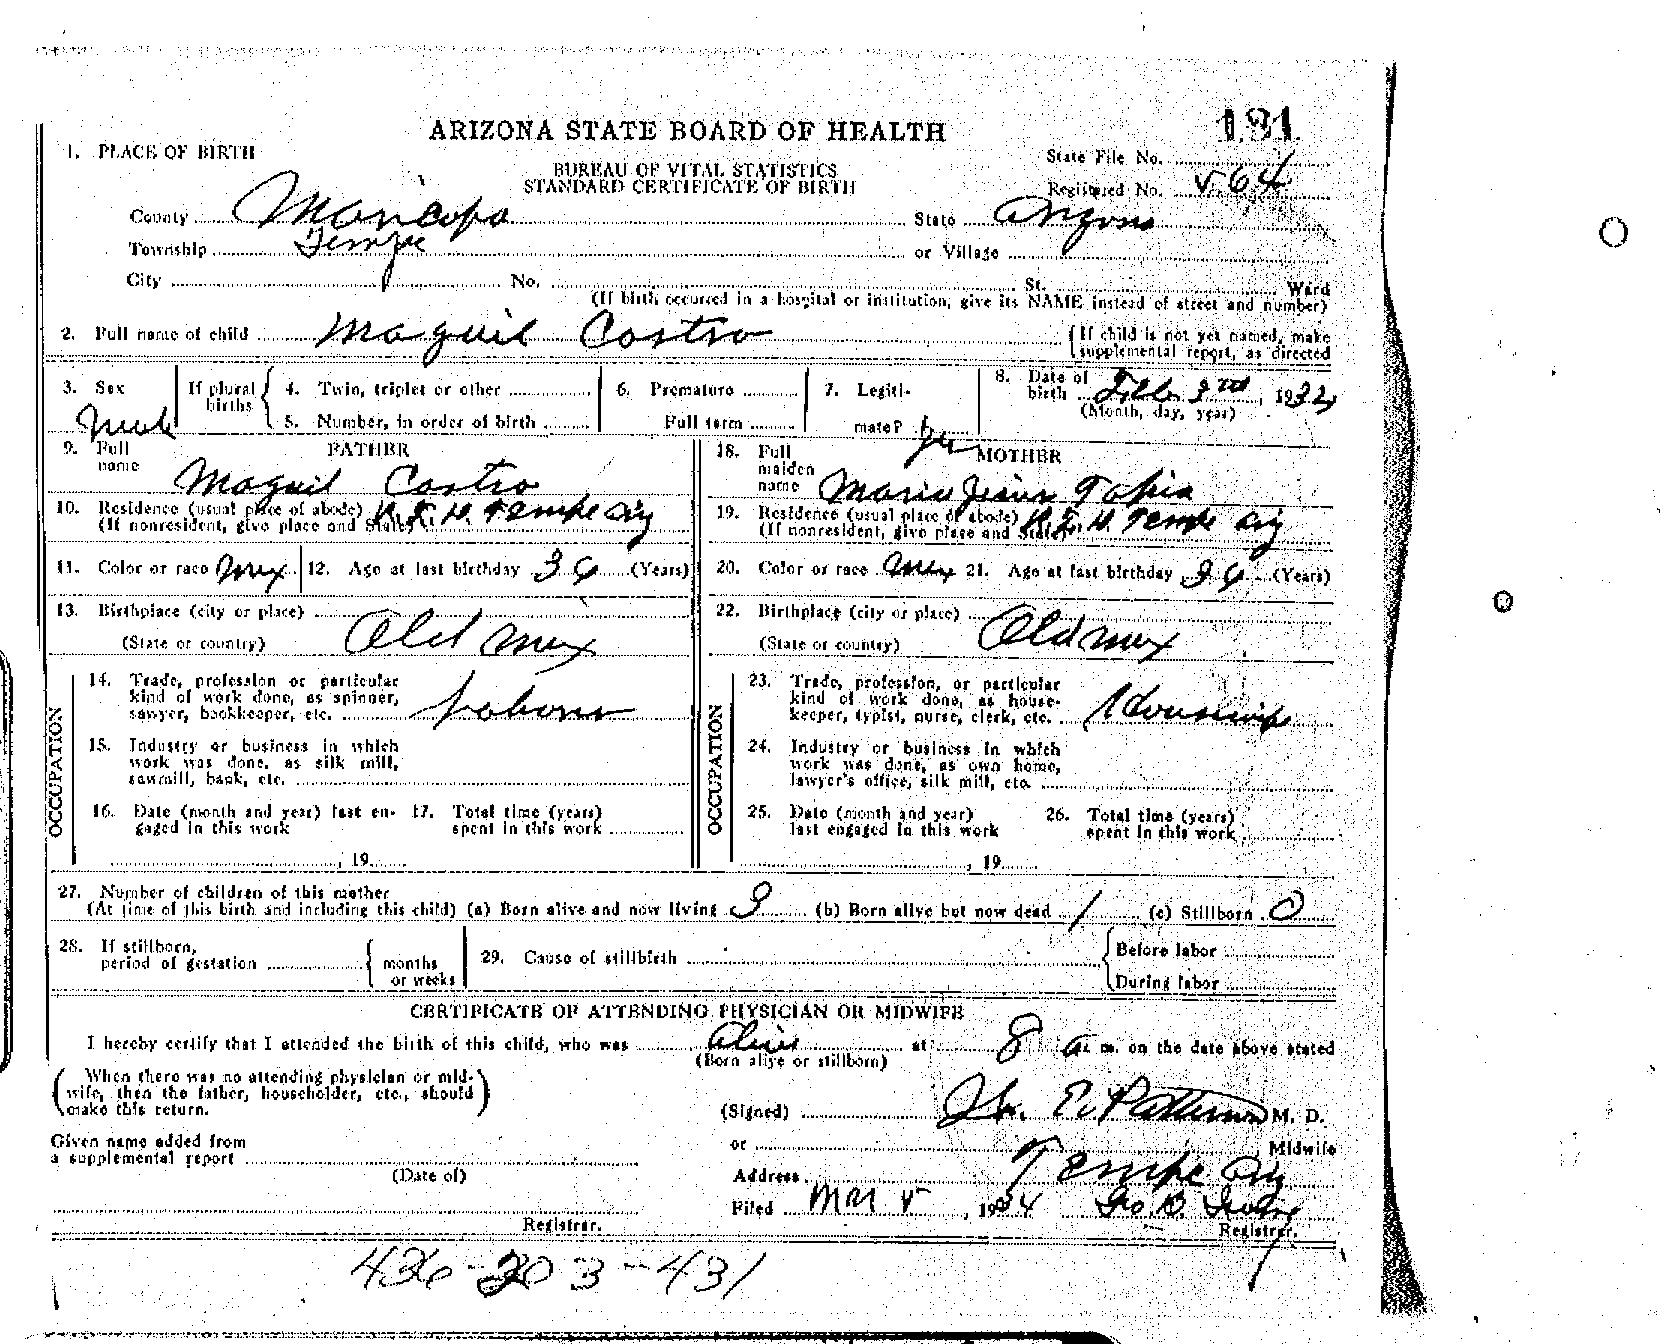 ARIZONA STATE BOARD OF HEALTH
191
1. PLACE OF BIRTH
BUREAU OF VITAL STATISTICS
State File No.
STANDARD CERTIFICATE OF BIRTH
Registered No. 564
County Maricopa State Arizona
Township Tempe or Village
City No. St. Ward
(If birth occurred in a hospital or institution, give its NAME instead of street and number)
2. Full name of child Maguil Castro (If child is not yet named, make supplemental report, as directed
3. Sex Male If plural births 4. Twin, triplet or other 5. Number, in order of birth 6. Premature Full term 7. Legitimate? yes 8. Date of birth Feb. 3rd, 1934 (Month, day, year)
FATHER
9. Full name Maguil Castro
10. Residence (usual place of abode) (If nonresident, give place and State) Tempe Ariz
11. Color or race Mex 12. Age at last birthday 36 (Years)
13. Birthplace (city or place)
(State or country) Old Mex
OCCUPATION
14. Trade, profession or particular kind of work done, as spinner, sawyer, bookkeeper, etc. Laborer
15. Industry or business in which work was done, as silk mill, sawmill, bank, etc.
16. Date (month and year) last engaged in this work , 19
17. Total time (years) spent in this work
MOTHER
18. Full maiden name Maria Jesus Tapia
19. Residence (usual place of abode) (If nonresident, give place and State) Tempe Ariz
20. Color or race Mex 21. Age at last birthday 36 (Years)
22. Birthplace (city or place)
(State or country) Old Mex
OCCUPATION
23. Trade, profession, or particular kind of work done, as housekeeper, typist, nurse, clerk, etc. Housewife
24. Industry or business in which work was done, as own home, lawyer's office, silk mill, etc.
25. Date (month and year) last engaged in this work , 19
26. Total time (years) spent in this work
27. Number of children of this mother
(At time of this birth and including this child) (a) Born alive and now living 9 (b) Born alive but now dead 1 (c) Stillborn 0
28. If stillborn, period of gestation months or weeks 29. Cause of stillbirth Before labor During labor
CERTIFICATE OF ATTENDING PHYSICIAN OR MIDWIFE
I hereby certify that I attended the birth of this child, who was alive at 8 a. m. on the date above stated
(Born alive or stillborn)
(When there was no attending physician or midwife, then the father, householder, etc., should make this return.)
(Signed) E. Patterson M. D.
Given name added from a supplemental report
or Midwife
(Date of)
Address Tempe Ariz
Filed Mar 5, 1934 Geo. B. Registrar.
Registrar.
436-203-431